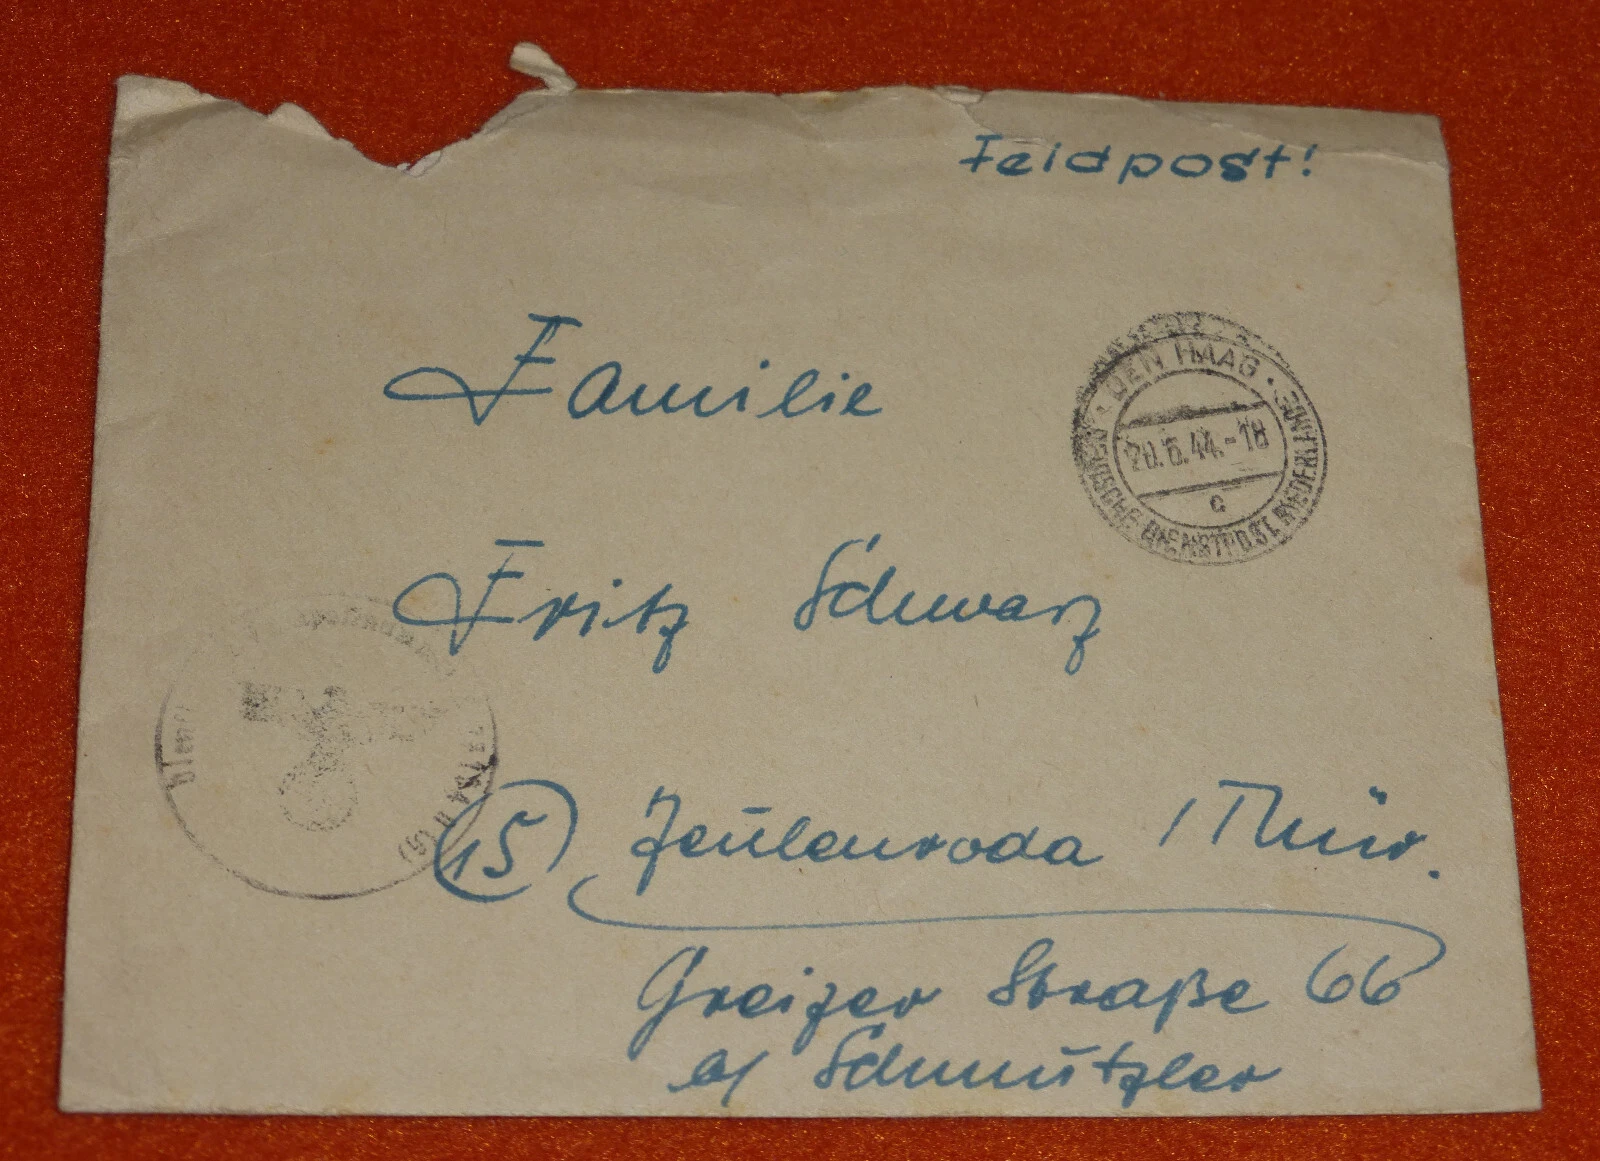 Feldpost!
Familie
DEN HAAG
DEUTSCHE DIENSTPOST NIEDERLANDE
20.6.44.-18
c
Fritz Schwarz
(15) Zeulenroda / Thür.
Greizer Straße 66
b/ Schmützler